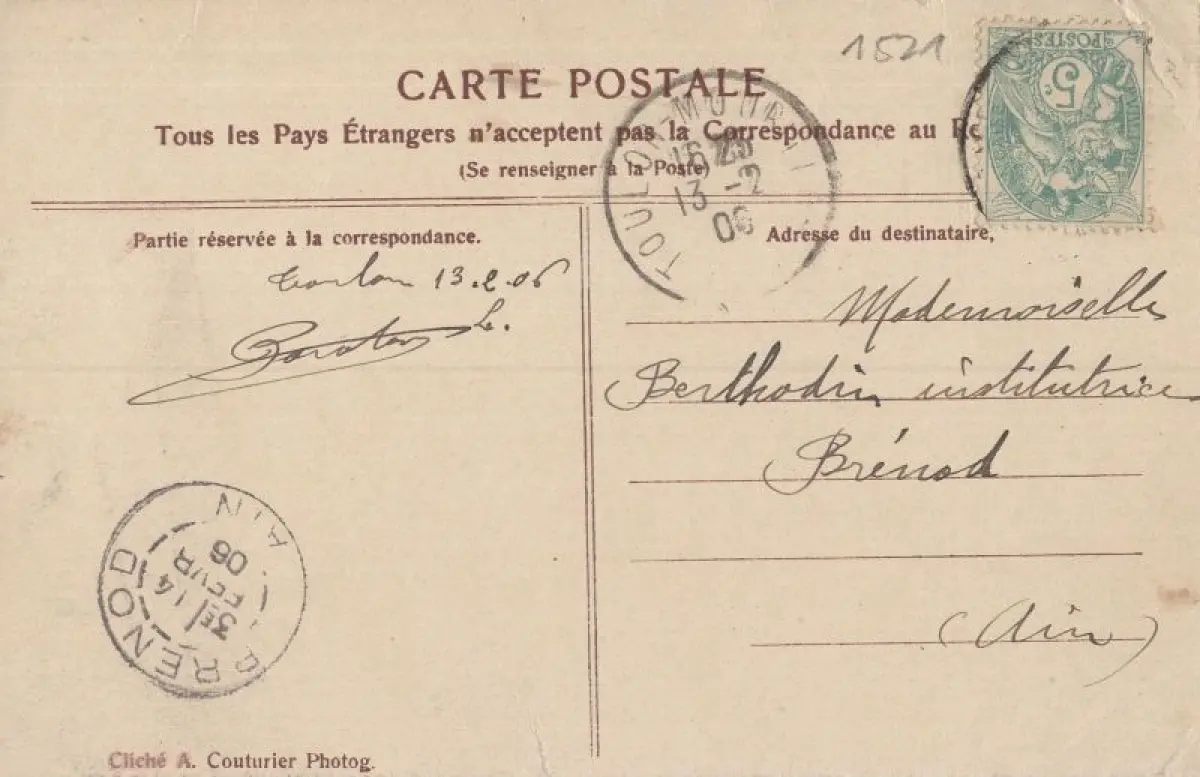 1521
POSTES
5c
CARTE POSTALE
Tous les Pays Étrangers n'acceptent pas la Correspondance au
(Se renseigner à la Poste)
TOULON-
13 -2
06
Partie réservée à la correspondance.
Toulon 13.2.06
Adresse du destinataire,
Mademoiselle
Berthodin institutrice
Brénod
(Ain)
BRENOD
AIN
3E
14
FEVR
06
Cliché A. Couturier Photog.